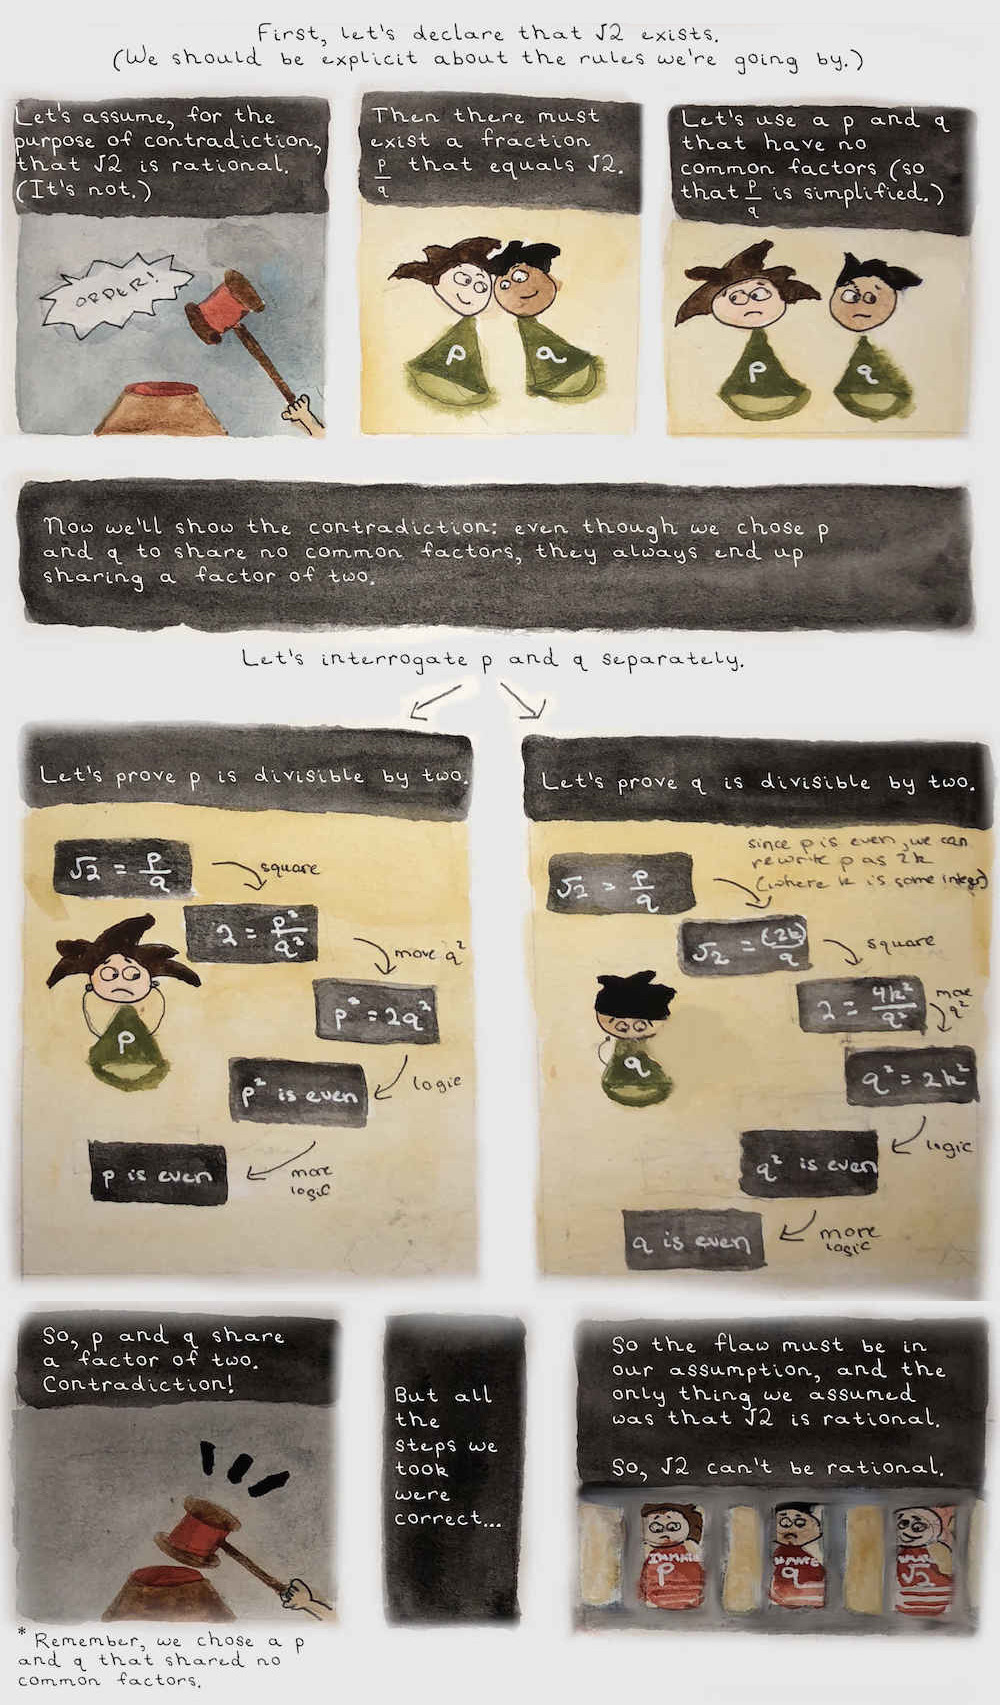 First, let's declare that √2 exists.
(We should be explicit about the rules we're going by.)
Let's assume, for the
purpose of contradiction,
that √2 is rational.
(It's not.)
ORDER!
Then there must
exist a fraction
p/q that equals √2.
p
q
Let's use a p and q
that have no
common factors (so
that p/q is simplified.)
p
q
Now we'll show the contradiction: even though we chose p
and q to share no common factors, they always end up
sharing a factor of two.
Let's interrogate p and q separately.
Let's prove p is divisible by two.
√2 = p/q
square
2 = p²/q²
move q²
p² = 2q²
p
logic
p² is even
more
logic
p is even
Let's prove q is divisible by two.
since p is even, we can
rewrite p as 2k
(where k is some integer)
√2 = p/q
√2 = (2k)/q
square
2 = 4k²/q²
move
q²
q
q² = 2k²
logic
q² is even
more
logic
q is even
So, p and q share
a factor of two.
Contradiction!
But all
the
steps we
took
were
correct...
So the flaw must be in
our assumption, and the
only thing we assumed
was that √2 is rational.
So, √2 can't be rational.
INMATE
p
q
√2
* Remember, we chose a p
and q that shared no
common factors.